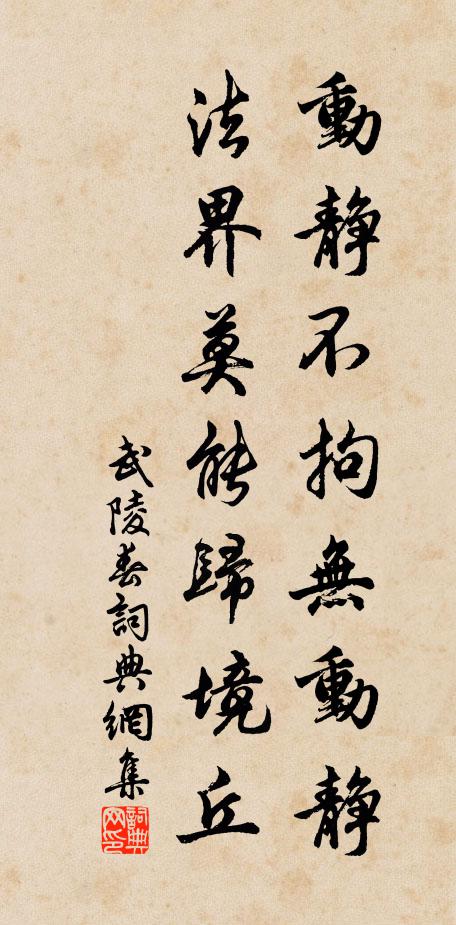 動靜不拘無動靜
法界莫能歸境丘
武陵春詞典網集
詞典
网印